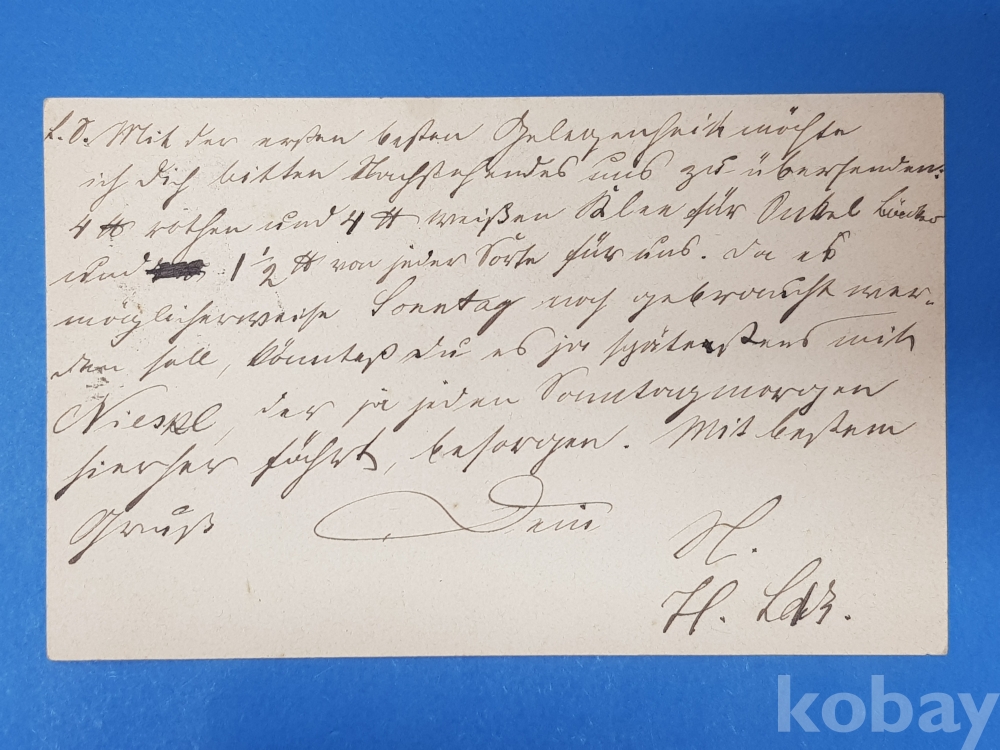 L. S. Mit der ersten besten Gelegenheit möchte
ich Dich bitten Nachstehendes uns zu übersenden:
4 ℔ rothen und 4 ℔ weißen Klee für Onkel
und 1 1/2 ℔ von jeder Sorte für uns. Da es
möglicherweise Sonntag noch gebraucht wer-
den soll, könntest Du es ja spätestens mit
der ja jeden Sonntagmorgen
hierher fährt, besorgen. Mit bestem
Gruß Dein
H.
kobay